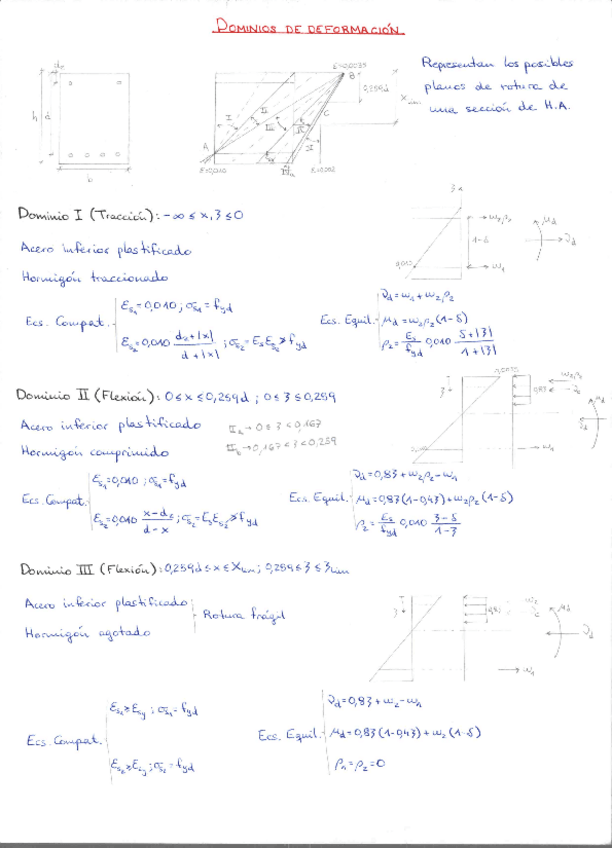 DOMINIOS DE DEFORMACIÓN
Representan los posibles
planos de rotura de
una sección de H.A.
h d
b
E=0,0035
B
0,259d
x
I II III
C
A
E=0,010
E=0,002
Dominio I (Tracción): -∞ ≤ x, ʒ ≤ 0
Acero inferior plastificado
Hormigón traccionado
Ecs. Compat.
εs₁=0,010 ; σs₁=fyd
εs₂=0,010 (d₂+|x|)/(d+|x|) ; σs₂=Es εs₂ ≯ fyd
Ecs. Equil.
υd=ω₁+ω₂ρ₂
μd=ω₂ρ₂(1-δ)
ρ₂=Es/fyd 0,010 (δ+|ʒ|)/(1+|ʒ|)
ʒ
ω₂ρ₂
1-δ
ω₁
0,010
μd
υd
Dominio II (Flexión): 0 ≤ x ≤ 0,259d ; 0 ≤ ʒ ≤ 0,259
Acero inferior plastificado
IIa → 0 ≤ ʒ < 0,167
IIb → 0,167 < ʒ < 0,259
Hormigón comprimido
Ecs. Compat.
εs₁=0,010 ; σs₁=fyd
εs₂=0,010 (x-d₂)/(d-x) ; σs₂=Es εs₂ ≯ fyd
Ecs. Equil.
υd=0,8ʒ+ω₂ρ₂-ω₁
μd=0,8ʒ(1-0,4ʒ)+ω₂ρ₂(1-δ)
ρ₂=Es/fyd 0,010 (ʒ-δ)/(1-ʒ)
ʒ
0,8ʒ
ω₂ρ₂
ω₁
μd
υd
Dominio III (Flexión): 0,259d ≤ x ≤ Xlim ; 0,259 ≤ ʒ ≤ ʒlim
Acero inferior plastificado
Hormigón agotado
Rotura frágil
Ecs. Compat.
εs₁ ≥ εsy ; σs₁=fyd
εs₂ ≥ εsy ; σs₂=fyd
Ecs. Equil.
υd=0,8ʒ+ω₂-ω₁
μd=0,8ʒ(1-0,4ʒ)+ω₂(1-δ)
ρ₁=ρ₂=0
ʒ
ω₂
ω₁
μd
υd